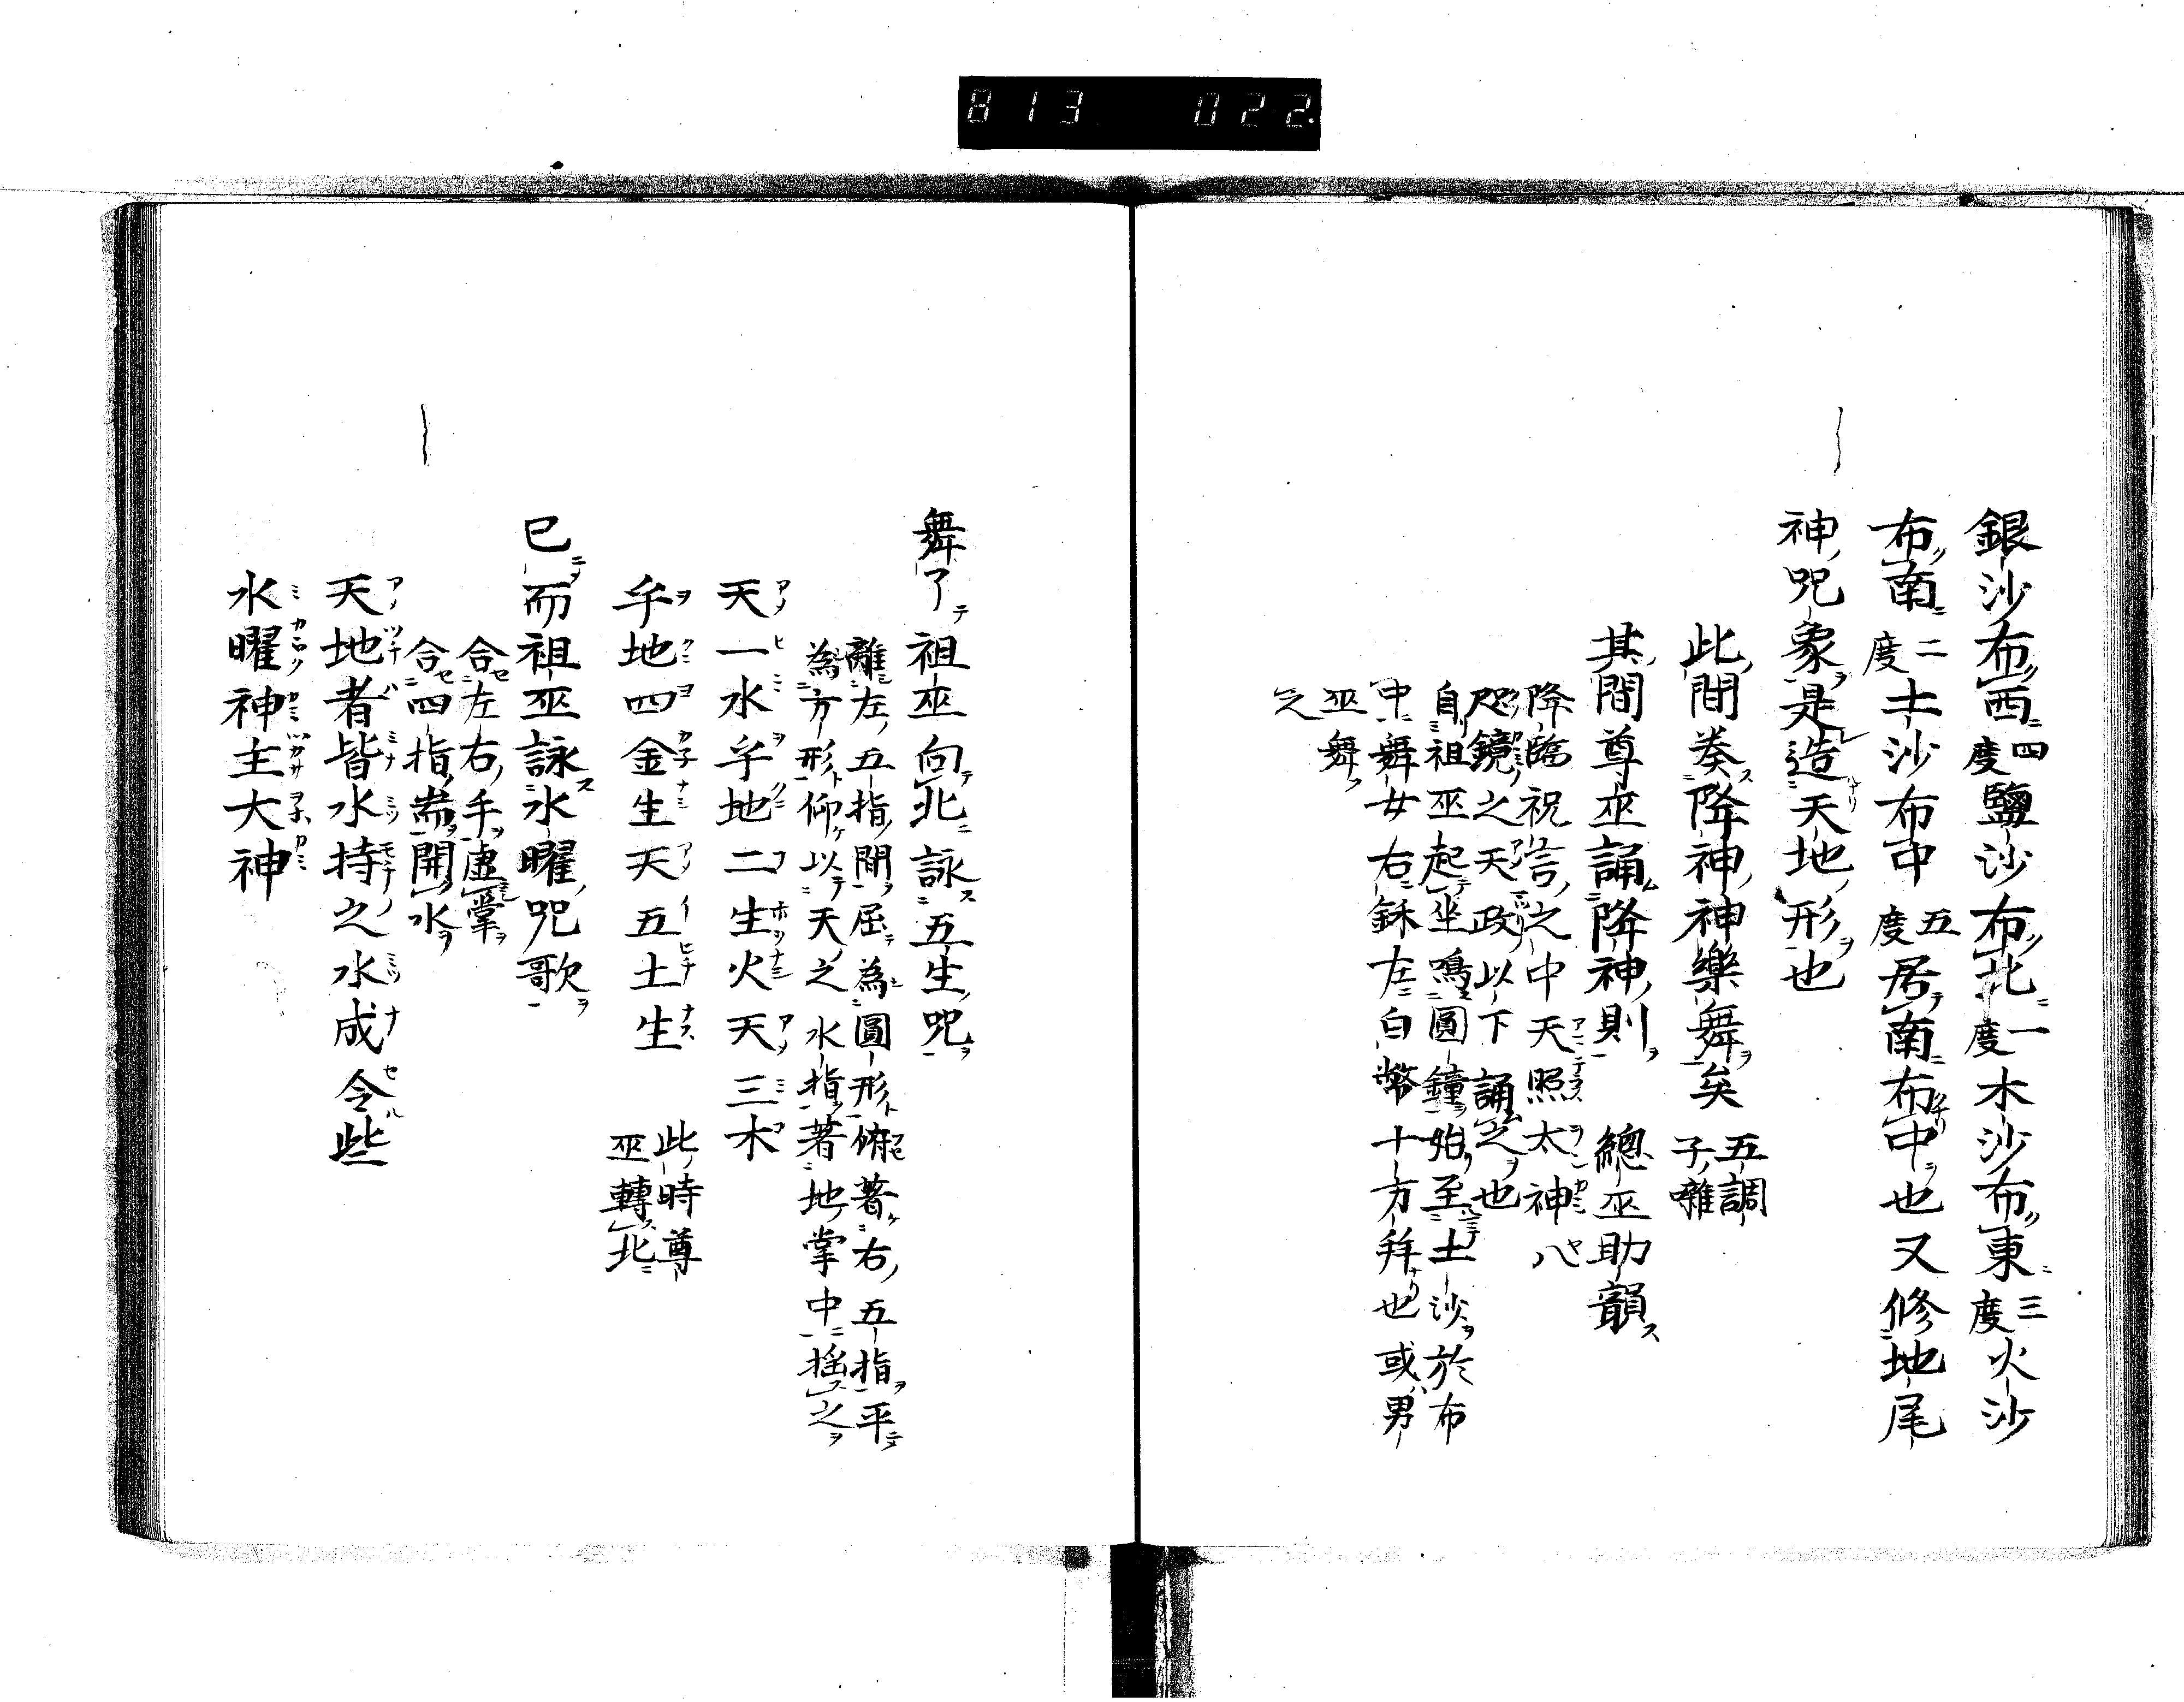 813 022
銀沙布西四度鹽沙布北一度木沙布東三度火沙
布南二度土沙布中五度居南布中也又修地尾
神咒象是造天地形也
此間奏降神神樂舞矣 五調子囃
其間尊巫誦降神則 總巫助韻
降臨祝言之中天照太神八
咫鏡之天政以下誦之也
自祖巫起坐鳴圓鐘始至土沙於布
中舞女右鈢左白幣十方拜也或男
巫舞
之
舞了祖巫向北詠五生咒
離左五指間屈為圓形俯著右五指平
為方形仰以天之水指著地掌中搖之
天一水乎地二生火天三木
乎地四金生天五土生 此時尊巫轉北
已而祖巫詠水曜咒歌
合左右手虛掌
合四指耑開水
天地者皆水持之水成令些
水曜神主大神